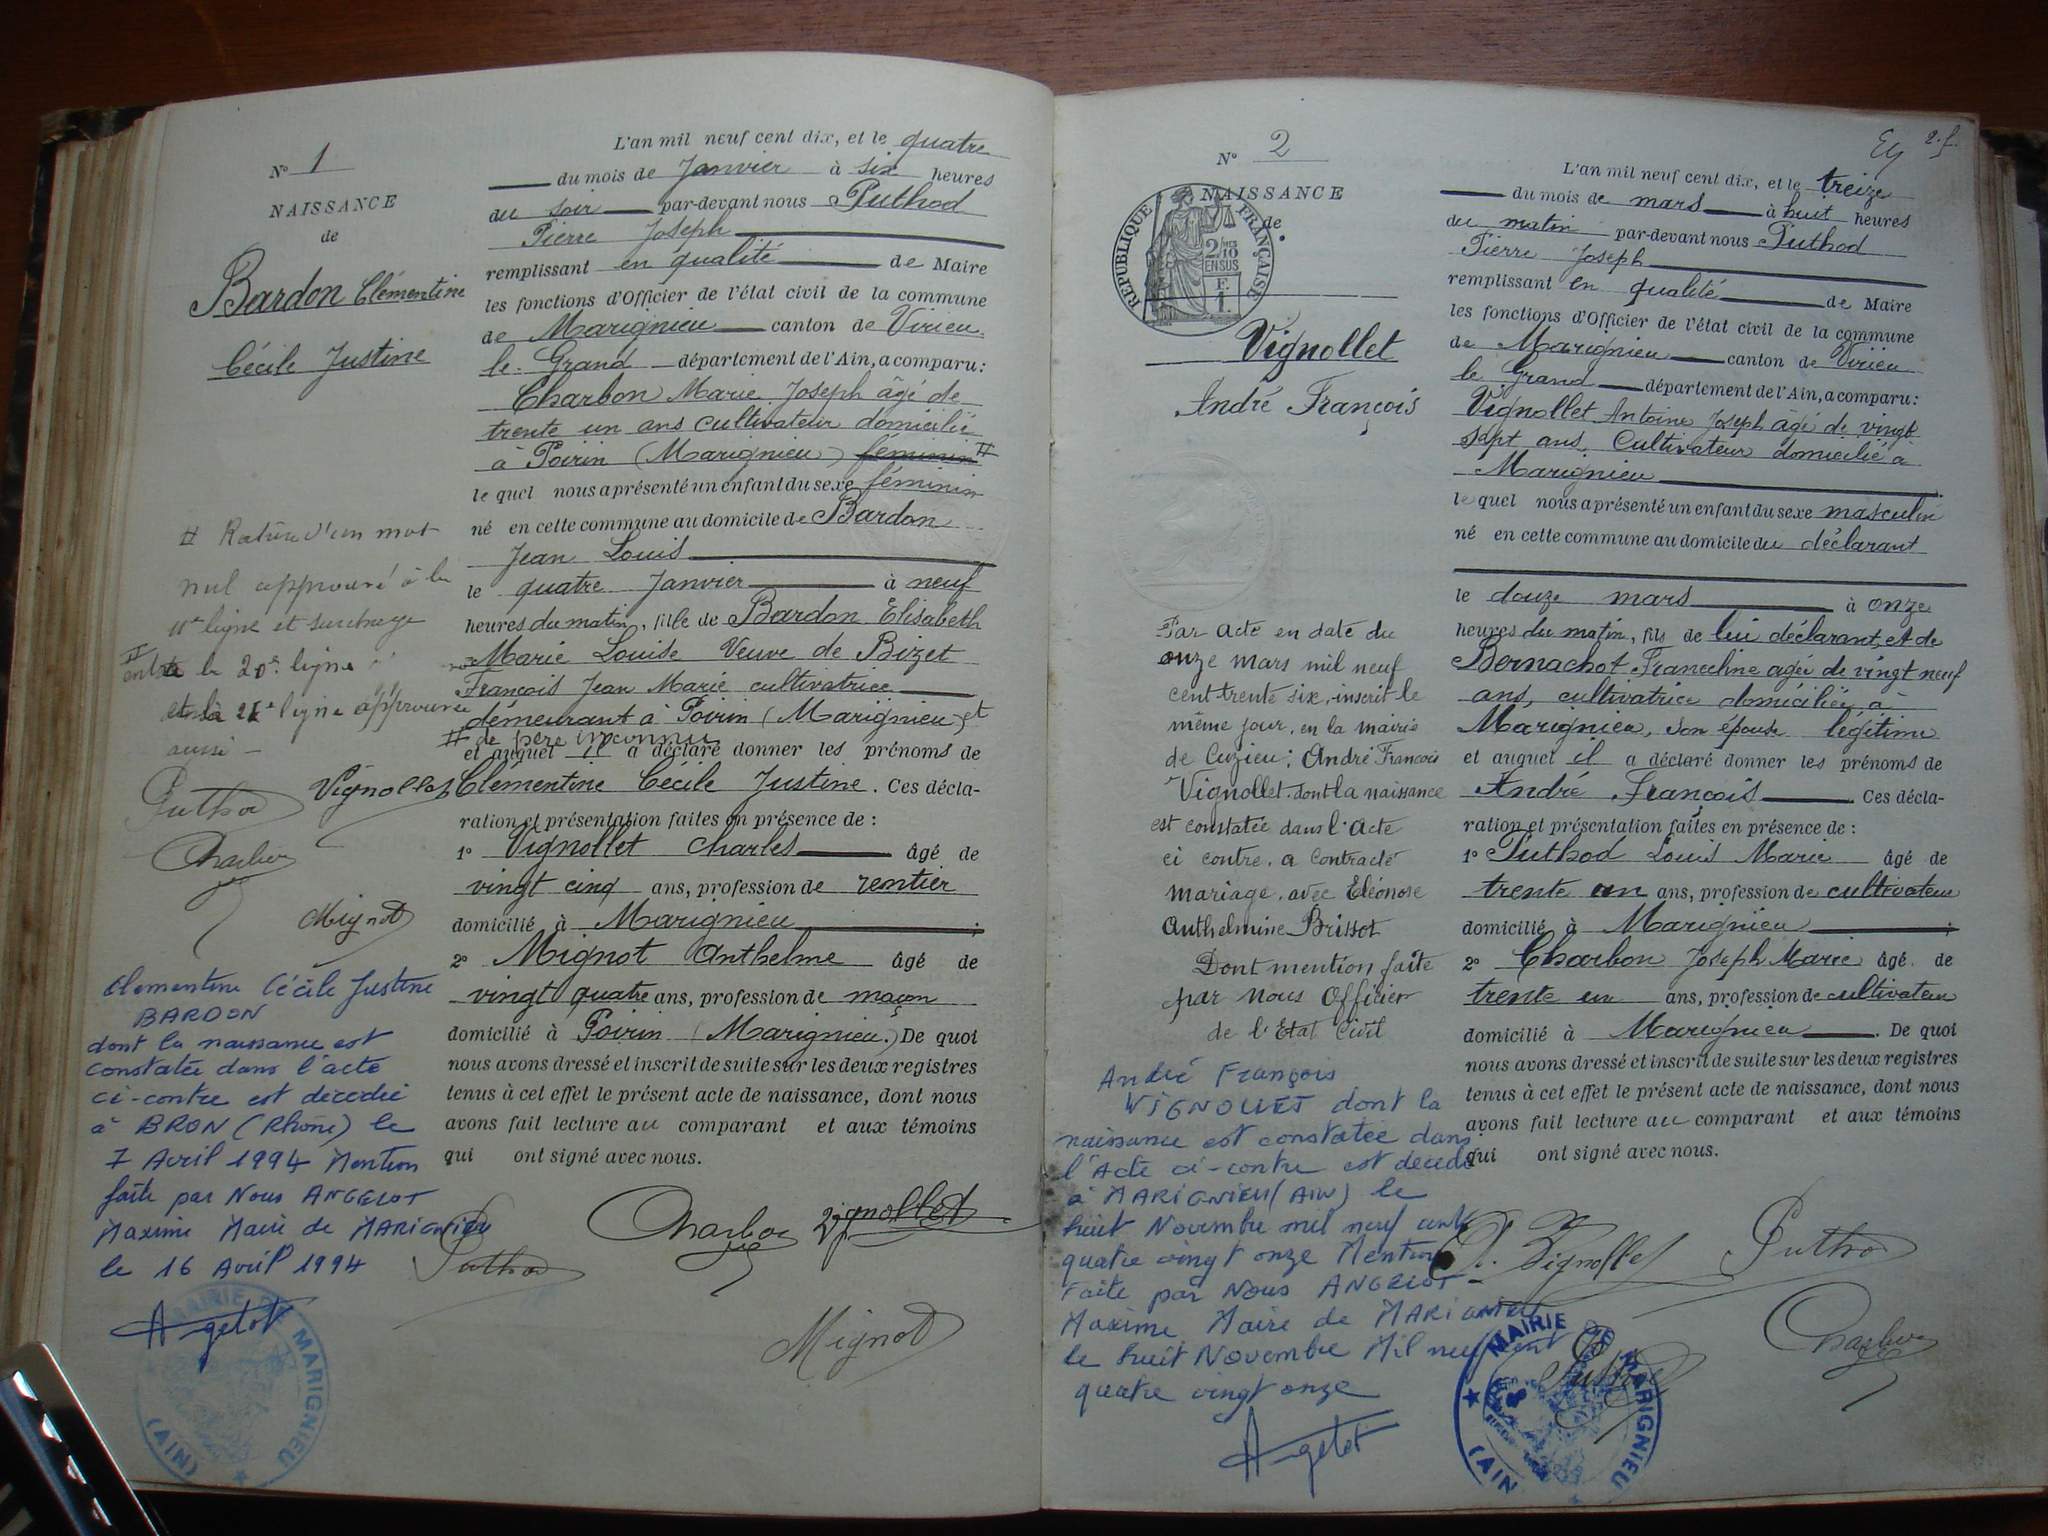 Nº 1
NAISSANCE
de
Bardon Clémentine
Cécile Justine
# Rature d'un mot
nul approuvé à la
11e ligne et surcharge
entre la 20e ligne
et la 21e ligne approuvée
aussi -
Puthod Vignollet
Charbon
Mignot
Clementine Cécile Justine
BARDON
dont la naissance est
constatée dans l'acte
ci-contre est décédée
à BRON (Rhône) le
7 Avril 1994 Mention
faite par Nous ANGELOT
Maxime Maire de MARIGNIEU
le 16 Avril 1994
Angelot
MAIRIE DE MARIGNIEU
(AIN)
L'an mil neuf cent dix, et le quatre
du mois de Janvier à six heures
du soir par-devant nous Puthod
Pierre Joseph
remplissant en qualité de Maire
les fonctions d'Officier de l'état civil de la commune
de Marignieu canton de Virieu
le Grand département de l'Ain, a comparu :
Charbon Marie Joseph âgé de
trente un ans cultivateur domicilié
à Poirin (Marignieu) féminin #
le quel nous a présenté un enfant du sexe féminin
né en cette commune au domicile de Bardon
Jean Louis
le quatre Janvier à neuf
heures du matin, fille de Bardon Elisabeth
Marie Louise Veuve de Bizet
François Jean Marie cultivatrice
démeurant à Poirin (Marignieu) et
# de père inconnu
et auquel il a déclaré donner les prénoms de
Clémentine Cécile Justine. Ces décla-
ration et présentation faites en présence de :
1º Vignollet Charles âgé de
vingt cinq ans, profession de rentier
domicilié à Marignieu ;
2º Mignot Anthelme âgé de
vingt quatre ans, profession de maçon
domicilié à Poirin (Marignieu.) De quoi
nous avons dressé et inscrit de suite sur les deux registres
tenus à cet effet le présent acte de naissance, dont nous
avons fait lecture au comparant et aux témoins
qui ont signé avec nous.
Puthod Charbon Vignollet
Mignot
2 f.
Nº 2
NAISSANCE
de
RÉPUBLIQUE FRANÇAISE
2/10
EN SUS
F.
1.
Vignollet
André François
Par acte en date du
onze mars mil neuf
cent trente six, inscrit le
même jour, en la mairie
de Cuzieu ; André François
Vignollet. dont la naissance
est constatée dans l'acte
ci contre. a contracté
mariage. avec Eléonore
Anthelmine Brissot
Dont mention faite
par nous Officier
de l'Etat Civil
André François
VIGNOLLET dont la
naissance est constatée dans
l'Acte ci-contre est décédé
à MARIGNIEU (AIN) le
huit Novembre mil neuf cent
quatre vingt onze Mention
Faite par Nous ANGELOT
Maxime Maire de MARIGNIEU
le huit Novembre Mil neuf cent
quatre vingt onze
Angelot
MAIRIE DE MARIGNIEU
(AIN
L'an mil neuf cent dix, et le treize
du mois de mars à huit heures
du matin par-devant nous Puthod
Pierre Joseph
remplissant en qualité de Maire
les fonctions d'Officier de l'état civil de la commune
de Marignieu canton de Virieu
le Grand département de l'Ain, a comparu :
Vignollet Antoine Joseph âgé de vingt
sept ans, Cultivateur domicilié à
Marignieu
le quel nous a présenté un enfant du sexe masculin
né en cette commune au domicile du déclarant
le douze mars à onze
heures du matin, fils de lui déclarant, et de
Bernachot Franceline agée de vingt neuf
ans, cultivatrice domiciliée à
Marignieu, son épouse légitime
et auquel il a déclaré donner les prénoms de
André François. Ces décla-
ration et présentation faites en présence de :
1º Puthod Louis Marie âgé de
trente un ans, profession de cultivateur
domicilié à Marignieu ;
2º Charbon Joseph Marie âgé de
trente un ans, profession de cultivateur
domicilié à Marignieu. De quoi
nous avons dressé et inscrit de suite sur les deux registres
tenus à cet effet le présent acte de naissance, dont nous
avons fait lecture au comparant et aux témoins
qui ont signé avec nous.
Vignollet Puthod
Charbon
Puthod